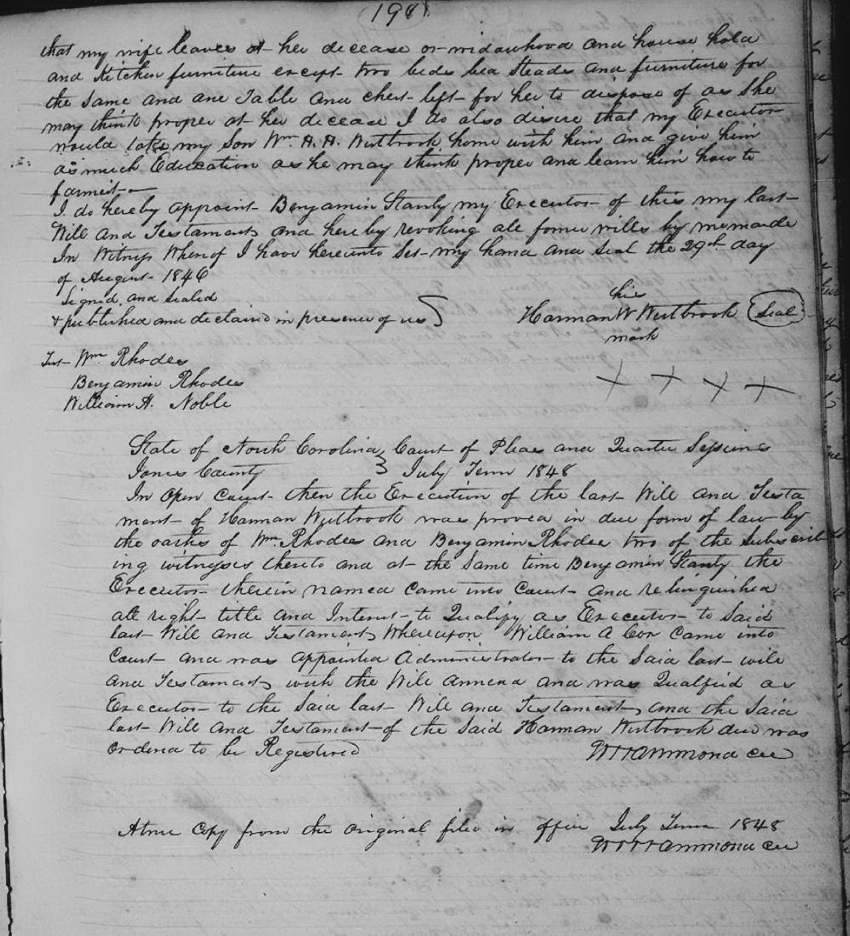 198
that my wife leaves at her decease or widowhood and house hold
and Kitchen furniture except two beds bed Steads and furniture for
the Same and one Table and chest left for her to dispose of as She
may think proper at her decease I do also disire that my Executor
would take my Son Wm. H. H. Westbrook home with him and give him
as much Education as he may think proper and learn him how to
farm it
I do hereby appoint Benjamin Stanly my Executor of this my last
Will and Testament and hereby revoking all former wills by me made
In Witness Whereof I have hereunto Set my hand and Seal the 29th day
of August 1846
Signed, and Sealed
& published and declared in presence of us
his
Harman W Westbrook Seal
mark
Test Wm Rhodes
Benjamin Rhodes
William H. Noble
State of North Carolina Court of Pleas and Quarter Sessions
Jones County July Term 1848
In Open Court then the Execution of the last Will and Testa
ment of Harman Westbrook was proved in due form of law by
the oaths of Wm. Rhodes and Benjamin Rhodes two of the Subscrib
ing witnesses thereto and at the Same time Benjamin Stanly the
Executor therein named came into Court and relinquished
all right title and Interest to Qualify as Executor to Said
last Will and Testament Whereupon William A Cox Came into
Court and was appointed Administrator to the Said last will
and Testament with the Will annexed and was Qualified as
Executor to the Said last Will and Testament and the Said
last Will and Testament of the Said Harman Westbrook dec was
Ordered to be Registered Hammond
A true Copy from the Original filed in office July Term 1848
Hammond